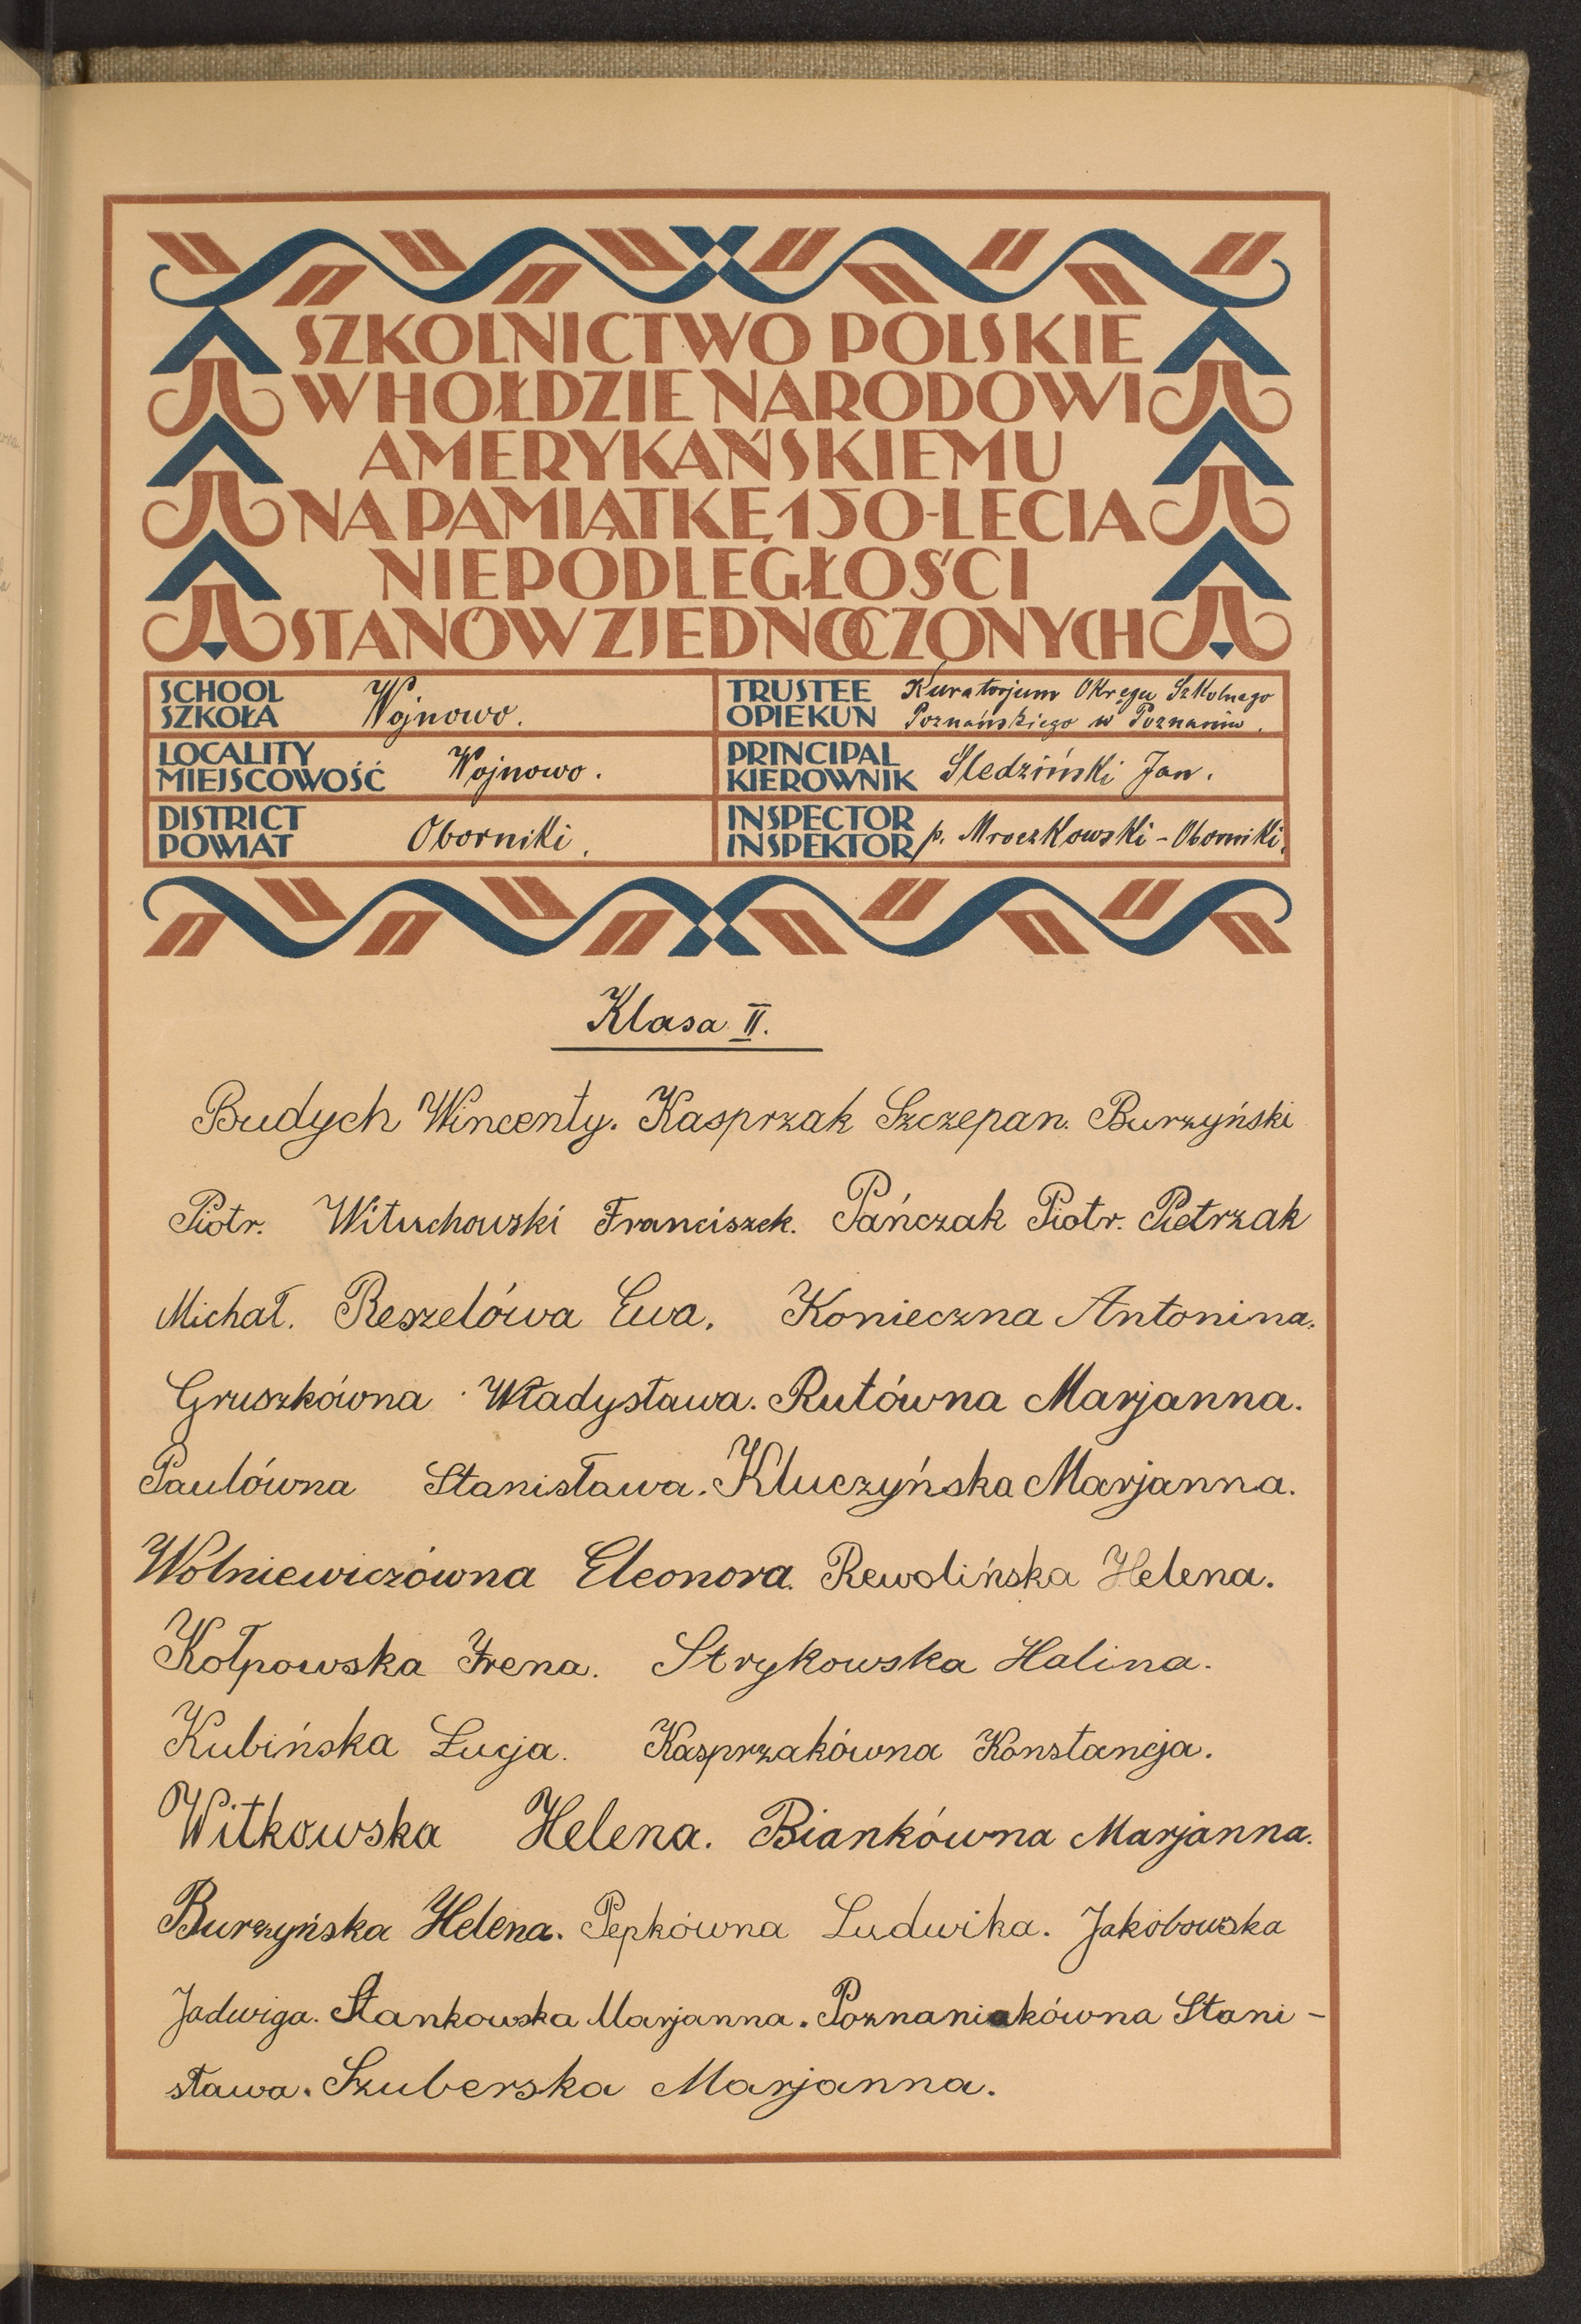 SZKOLNICTWO POLSKIE
W HOŁDZIE NARODOWI
AMERYKAŃSKIEMU
NA PAMIĄTKĘ 150-LECIA
NIEPODLEGŁOŚCI
STANÓW ZJEDNOCZONYCH
SCHOOL
SZKOŁA
Wojnowo.
TRUSTEE
OPIEKUN
Kuratorjum Okręgu Szkolnego
Poznańskiego w Poznaniu.
LOCALITY
MIEJSCOWOŚĆ
Wojnowo.
PRINCIPAL
KIEROWNIK
Śledziński Jan.
DISTRICT
POWIAT
Oborniki.
INSPECTOR
INSPEKTOR
p. Mroczkowski - Oborniki.
Klasa II.
Budych Wincenty. Kasprzak Szczepan. Burzyński
Piotr. Wituchowski Franciszek. Pańczak Piotr. Pietrzak
Michał. Reszelówa Ewa. Konieczna Antonina.
Gruszkówna Władysława. Rutówna Marjanna.
Paulówna Stanisława. Kluczyńska Marjanna.
Wolniewiczówna Eleonora. Rewolińska Helena.
Kołpowska Irena. Strykowska Halina.
Kubińska Łucja. Kasprzakówna Konstancja.
Witkowska Helena. Biankówna Marjanna.
Burzyńska Helena. Pepkówna Ludwika. Jakóbowska
Jadwiga. Stankowska Marjanna. Poznaniakówna Stani-
sława. Szuberska Marjanna.